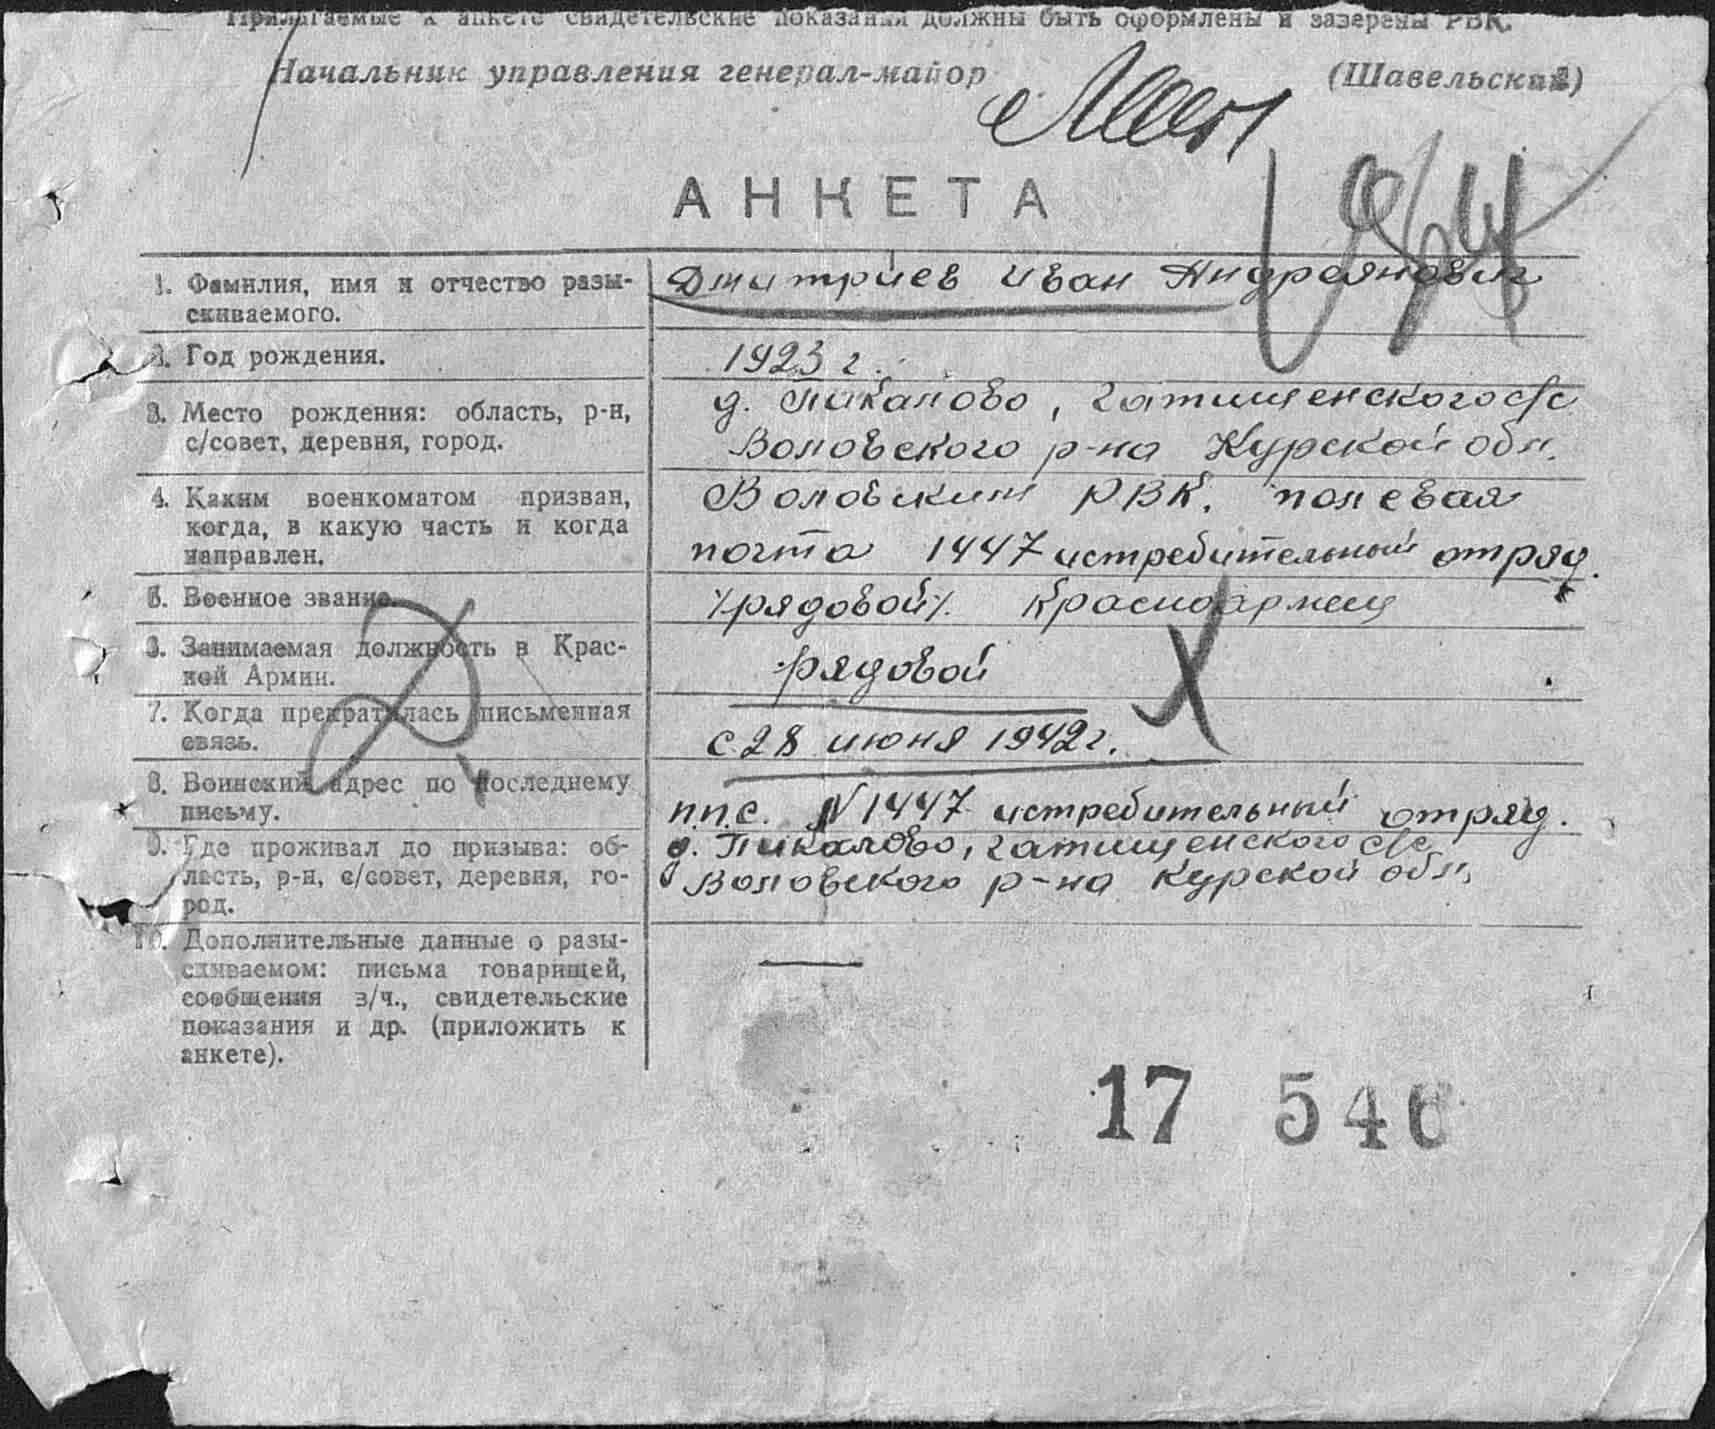 Прилагаемые к анкете свидетельские показания должны быть оформлены и заверены РВК.
Начальник управления генерал-майор (Шавельский)
АНКЕТА
1. Фамилия, имя и отчество разы-
скиваемого.
Дмитриев Иван Андреянович
2. Год рождения.
1923 г.
3. Место рождения: область, р-н,
с/совет, деревня, город.
д. Пикалово, Гатищенского с/с
Воловского р-на Курской обл.
4. Каким военкоматом призван,
когда, в какую часть и когда
направлен.
Воловским РВК. полевая
почта 1447 истребительный отряд.
5. Военное звание.
/рядовой/. Красноармеец
6. Занимаемая должность в Крас-
ной Армии.
рядовой
7. Когда прекратилась письменная
связь.
с 28 июня 1942 г.
8. Воинский адрес по последнему
письму.
п.п.с. N 1447 истребительный отряд.
9. Где проживал до призыва: об-
ласть, р-н, с/совет, деревня, го-
род.
д. Пикалово, Гатищенского с/с
Воловского р-на Курской обл.
10. Дополнительные данные о разы-
скиваемом: письма товарищей,
сообщения в/ч., свидетельские
показания и др. (приложить к
анкете).
17 546